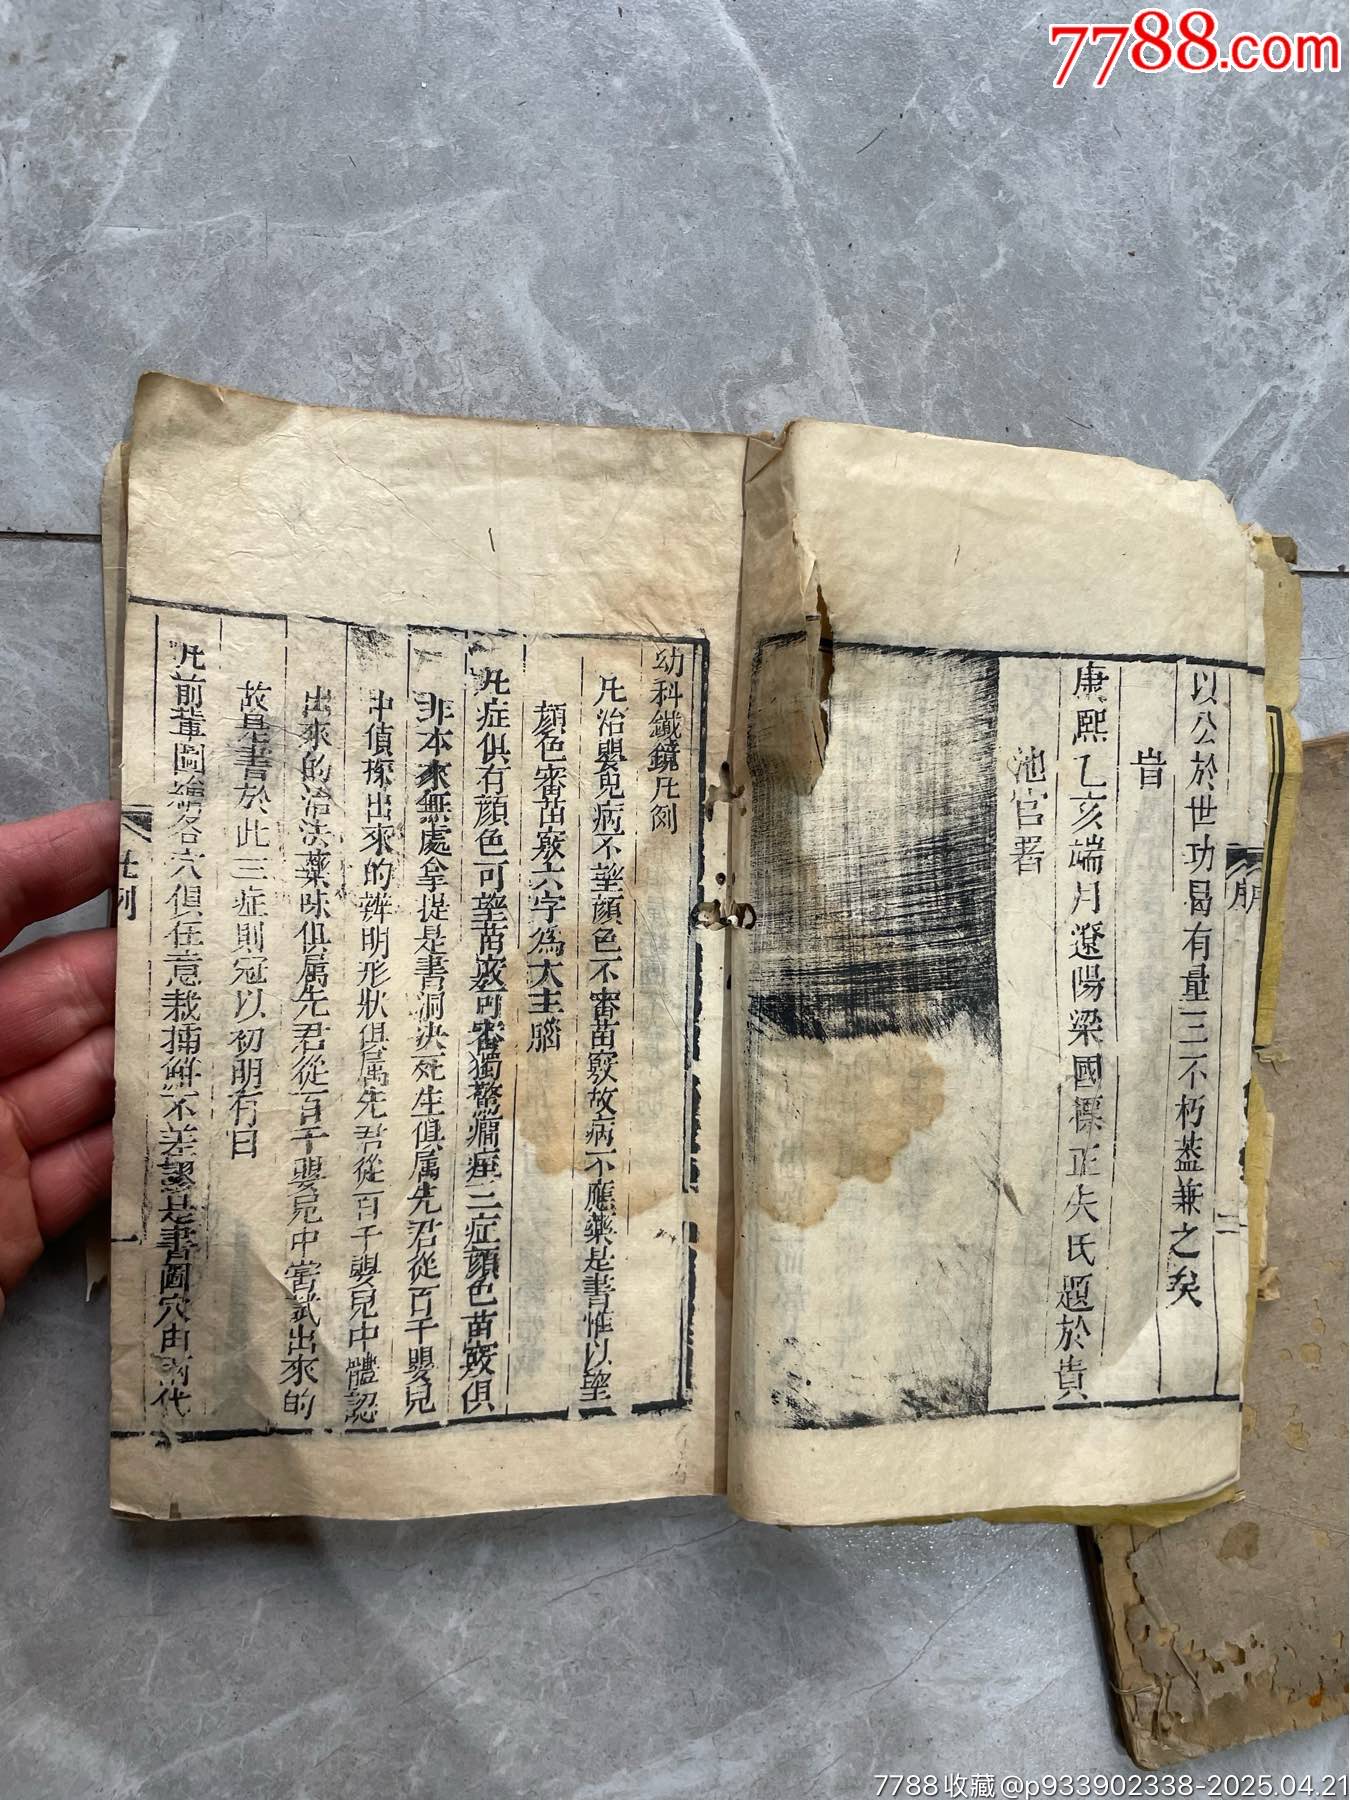 7788.com
以公於世功曷有量三不朽葢兼之矣
旹
康熙乙亥端月遼陽梁國標正夫氏題於貴
池官署
二
幼科鐵鏡凡例
凡治嬰兒病不望顏色不審苗竅故病不應藥是書惟以望
顏色審苗竅六字為大主腦
凡症俱有顏色可望苗竅可審獨驚癎痙三症顏色苗竅俱
非本來無處拿捉是書洞決死生俱属先君從百千嬰兒
中偵探出來的辨明形狀俱属先君從百千嬰兒中體認
出來的治法藥味俱属先君從百千嬰兒中嘗試出來的
故是書於此三症則冠以初明有曰
凡前軰圖繪各穴俱任意栽揷鮮不差是書圖穴由兩代
凡例
一
7788收藏@p933902338-2025.04.21